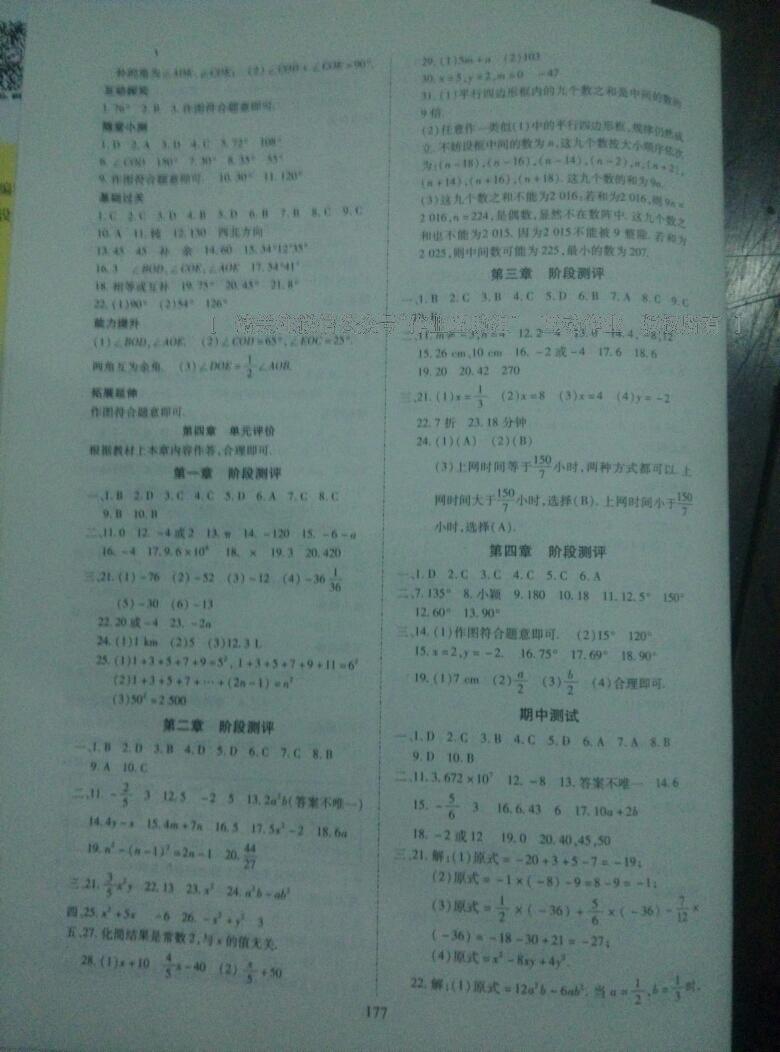 补的角为∠AOE,∠COE; (2)∠COD+∠COE=90°.
互动探究
1.76° 2.B 3.作图符合题意即可.
随堂小测
1.D 2.A 3.D 4.C 5.72° 108°
6.∠COD 180° 7.30° 8.35° 55°
9.作图符合题意即可. 10.30° 11.120°
基础过关
1.C 2.C 3.D 4.B 5.D 6.B 7.B 8.C 9.C
10.A 11.钝 12.130 西北方向
13.45 45 补 余 14.60 15.34°12′35″
16.3 ∠BOD,∠COE,∠AOE 17.54°41′
18.相等或互补 19.75° 20.45° 21.8°
22.(1)90° (2)54° 126°
能力提升
(1)∠BOD,∠AOE. (2)∠COD=65°,∠EOC=25°.
两角互为余角. (3)∠DOE=1/2∠AOB.
拓展延伸
作图符合题意即可.
第四章 单元评价
根据教材上本章内容作答,合理即可.
第一章 阶段测评
一、1.B 2.D 3.C 4.C 5.D 6.A 7.C 8.C
9.B 10.B
二、11.0 12.-4或2 13.π 14.-120 15.-6-a
16.-4 17.9.6×10⁶ 18.× 19.3 20.420
三、21.(1)-76 (2)-52 (3)-12 (4)-36 1/36
(5)-30 (6)-13
22.20或-4 23.-2a
24.(1)1 km (2)5 (3)12.3 L
25.(1)1+3+5+7+9=5²,1+3+5+7+9+11=6²
(2)1+3+5+7+…+(2n-1)=n²
(3)50²=2 500
第二章 阶段测评
一、1.B 2.D 3.B 4.D 5.D 6.C 7.C 8.B
9.A 10.C
二、11.-2/5 3 12.5 -2 5 13.2a²b(答案不唯一)
14.4y-x 15.4m+7n 16.5 17.5x²-2 18.6a
19.n²-(n-1)²=2n-1 20.44/27
三、21.3/5x²y 22.13 23.x² 24.a²b-ab²
四、25.x²+5x -6 26.-x²+y² 3
五、27.化简结果是常数2,与x的值无关.
28.(1)x+10 4/5x-40 (2)x/5+50
29.(1)5m+a (2)103
30.x=5,y=2,m=0 -47
31.(1)平行四边形框内的九个数之和是中间的数的
9倍.
(2)任意作一类似(1)中的平行四边形框,规律仍然成
立.不妨设框中间的数为n,这九个数按大小顺序依次
为:(n-18),(n-16),(n-14),(n-2),n,(n+2),
(n+14),(n+16),(n+18).这九个数的和为9n.
(3)这九个数之和不能为2 016:若和为2 016,则9n=
2 016,n=224,是偶数,显然不在数阵中.这九个数之
和也不能为2 015.因为2 015不能被9整除.若和为
2 025,则中间数可能为225,最小的数为207.
第三章 阶段测评
一、1.B 2.C 3.B 4.C 5.D 6.B 7.A 8.C 9.C
15.26 cm,10 cm 16.-2或-4 17.6 18.6
19.20 20.42 270
三、21.(1)x=1/3 (2)x=8 (3)x=4 (4)y=-2
22.7折 23.18分钟
24.(1)(A) (2)(B)
(3)上网时间等于150/7小时,两种方式都可以.上
网时间大于150/7小时,选择(B).上网时间小于150/7
小时,选择(A).
第四章 阶段测评
一、1.D 2.C 3.C 4.C 5.C 6.A
二、7.135° 8.小颖 9.180 10.18 11.12.5° 150°
12.60° 13.90°
三、14.(1)作图符合题意即可. (2)15° 120°
15.x=2,y=-2. 16.75° 17.69° 18.90°
19.(1)7 cm (2)a/2 (3)b/2 (4)合理即可.
期中测试
一、1.D 2.C 3.C 4.C 5.D 6.A 7.A 8.B
9.D 10.B
二、11.3.672×10⁷ 12.-8 13.答案不唯一 14.6
15.-5/6 3 16.6.43 6 17.10a+2b
18.-2或12 19.0 20.40,45,50
三、21.解:(1)原式=-20+3+5-7=-19;
(2)原式=-1×(-8)-9=8-9=-1;
(3)原式=1/2×(-36)+5/6×(-36)-7/12×
(-36)=-18-30+21=-27;
(4)原式=x²-8xy+4y².
22.解:(1)原式=12a²b-6ab².当a=1/2,b=1/3时,
177